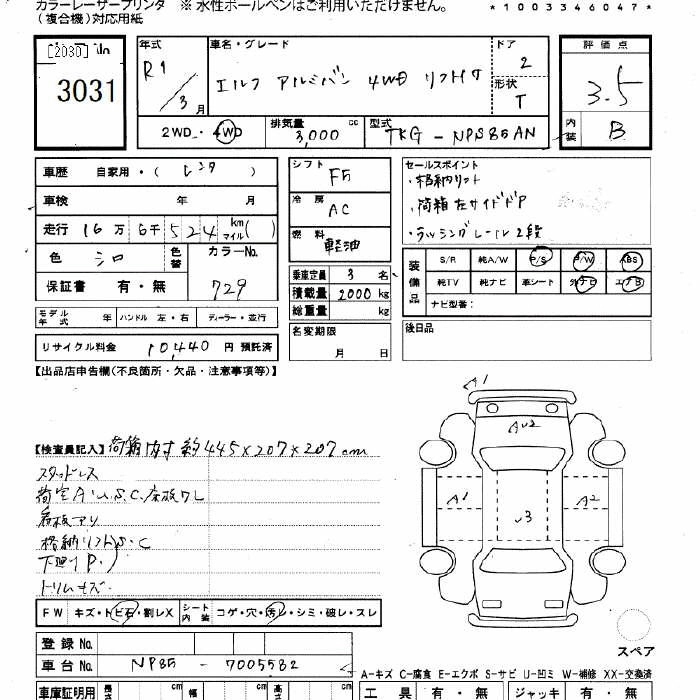 カラーレーザープリンタ ※ 水性ボールペンはご利用いただけません。
(複合機)対応用紙
*1003346047*
[2030]
3031
年式 R1 / 3 月
車名・グレード エルフ アルミバン 4WD リフト付
ドア 2
形状 T
2WD・4WD
排気量 3,000 cc
型式 TKG-NPS85AN
評価点 3.5
内装 B
車歴 自家用・( レンタ )
車検 年 月
走行 16 万 6千 5 2 4 km マイル ( )
色 シロ 色替 カラーNo. 729
保証書 有・無
モデル年式 年 ハンドル 左・右 ディーラー・並行
リサイクル料金 10,440 円 預託済
シフト F5
冷房 AC
燃料 軽油
乗車定員 3 名
積載量 2000 kg
総重量 kg
名変期限 月 日
セールスポイント
・格納リフト
・荷箱左サイドドア
・ラッシングレール2段
装備品 S/R 純A/W P/S P/W ABS
純TV 純ナビ 革シート 外ナビ エアB
ナビ型番:
後日品
【出品店申告欄(不良箇所・欠品・注意事項等)】
【検査員記入】荷箱内寸 約445×207×207cm
スタッドレス
看板アリ
格納リフトS.C
トリムキズ
FW キズ・トビ石・割レX シート内装 コゲ・穴・汚レ・シミ・破レ・スレ
登録 No.
車台 No. NP85-7005582
車庫証明用 長さ cm 幅 cm 高さ cm
A1
A1
A2
スペア
A-キズ C-腐食 E-エクボ S-サビ U-凹ミ W-補修 XX-交換済
工具 有・無 ジャッキ 有・無